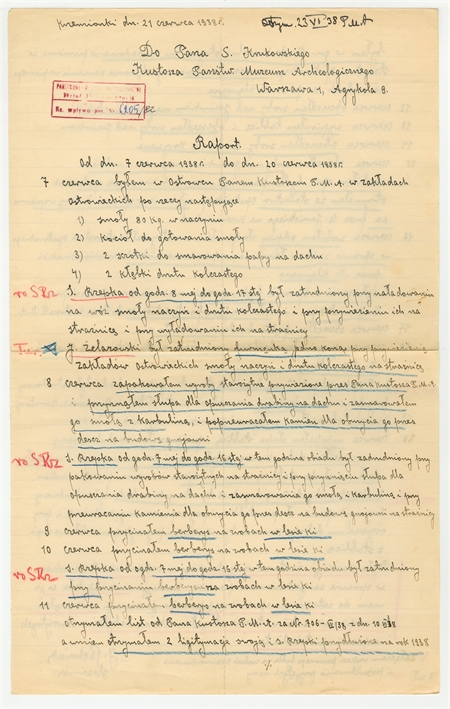 Krzemionki dn. 21 czerwca 1938 r.
Otrzym. 23 VI 38 P.M.A
Do Pana S. Krukowskiego
Kustosza Państw. Muzeum Archeologicznego
Warszawa 1, Agrykola 8.
Raport.
Od dn. 7 czerwca 1938 r. do dn. 20 czerwca 1938 r.
7 czerwca byłem w Ostrowcu Panem Kustoszem P.M.A. w zakładach
Ostrowieckich po rzeczy następujące
1) smoły 80 kg. w naczyniu
2) kocioł do gotowania smoły
3) 2 szczotki do smarowania papy na dachu
4) 2 kłębki drutu kolczastego
vo SRz
S. Rzepka od godz. 8 mej do godz. 17 stej był zatrudniony przy naładowaniu
na wóz smoły naczyń i drutu kolczastego i przy przywiezieniu ich na
strażnicę i przy wyładowaniu ich na strażnicy
J. Żelazowski był zatrudniony furmanką jedno konną przy przywiezieniu
zakładów Ostrowieckich smoły naczyń i drutu kolczastego na strażnicę
8 czerwca zapakowałem wyroby starożytne przywiezione przez Pana Kustosza P.M.A.
i przyrznąłem słupa dla opuszczania drabiny na dachu i zasmarowałem
go smołą z karbuliną, i poprzewracałem kamien dla obmycia go przez
deszcz na budowę gnojowni
vo SRz
S. Rzepka od godz. 7 mej do godz. 16 stej w tem godzina obiadu był zatrudniony przy
pakowaniu wyrobów starożytnych na strażnicy i przy przyrznięciu słupa dla
opuszczania drabiny na dachu i zasmarowania go smołą i karbuliną i przy
przewracaniu kamienia dla obmycia go przez deszcz na budowę gnojowni na strażnicy
9 czerwca przycinałem berberys na zrobach w lesie ki
10 czerwca przycinałem berberys na zrobach w lesie ki
vo SRz
S. Rzepka od godz. 7 mej do godz. 15 stej w tem godzina obiadu był zatrudniony
przy przycinaniu berberysa na zrobach w lesie ki
11 czerwca przycinałem berberys na zrobach w lesie ki
otrzymałem list od Pana Kustosza P.M.A. za Nr. 706-III/38 z dn. 10 VI 38
a w niem otrzymałem 2 legitymacje swoją i S. Rzepki przedłużone na rok 1938